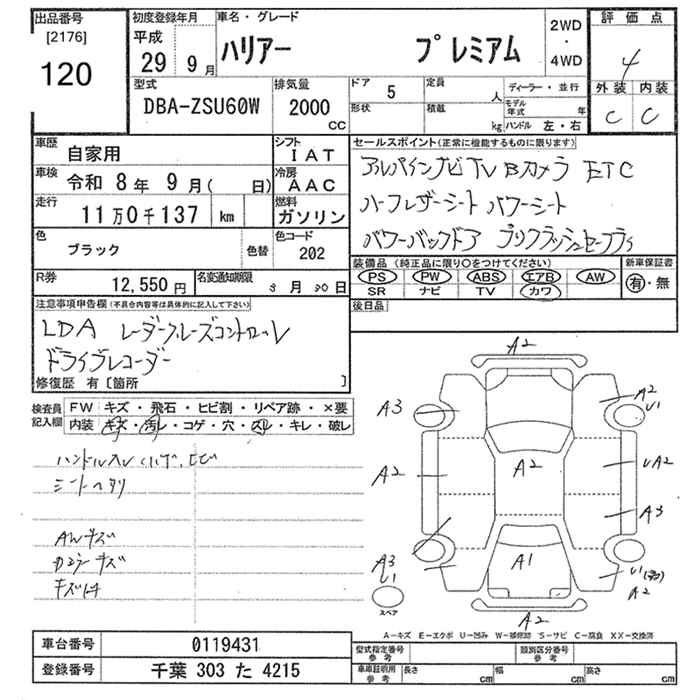 出品番号 初度登録年月 車名・グレード 評価点
[2176] 平成 2WD
120 29 9月 ハリアー プレミアム ・ 4
4WD
外装 内装
型式 排気量 ドア 5 定員 人 ディーラー・並行
DBA-ZSU60W 2000 CC 形状 積載 kg モデル年式 年 C C
ハンドル 左・右
車歴 自家用 シフト IAT セールスポイント(正常に機能するものに限ります)
車検 令和 8年 9月( 日) 冷房 AAC アルパインナビ TV Bカメラ ETC
走行 11万0千137 km 燃料 ガソリン ハーフレザーシート パワーシート
色 ブラック 色替 色コード 202 パワーバックドア プリクラッシュセーフティ
R券 12,550円 名変通知期限 月 30日 装備品(純正品に限り○をつけてください) 新車保証書
PS PW ABS エアB AW 有・無
SR ナビ TV カワ
注意事項申告欄(不具合内容等は具体的に記入して下さい) 後日品
LDA レーダークルーズコントロール
ドライブレコーダー
修復歴 有〔箇所 〕
検査員記入欄 FW キズ・飛石・ヒビ割・リペア跡・×要
内装 キズ・汚レ・コゲ・穴・スレ・キレ・破レ
A2
A3 A2 U1
シートヘタリ
A2 A2 UA2
A3
AWキズ
A3 U1 A1 U1
A2
スペア
A2
A-キズ E-エクボ U-凹み W-補修跡 S-サビ C-腐食 XX-交換済
車台番号 0119431 型式指定番号 参考 類別区分番号 参考
登録番号 千葉 303 た 4215 車車証明用 参考 長さ cm 幅 cm 高さ cm